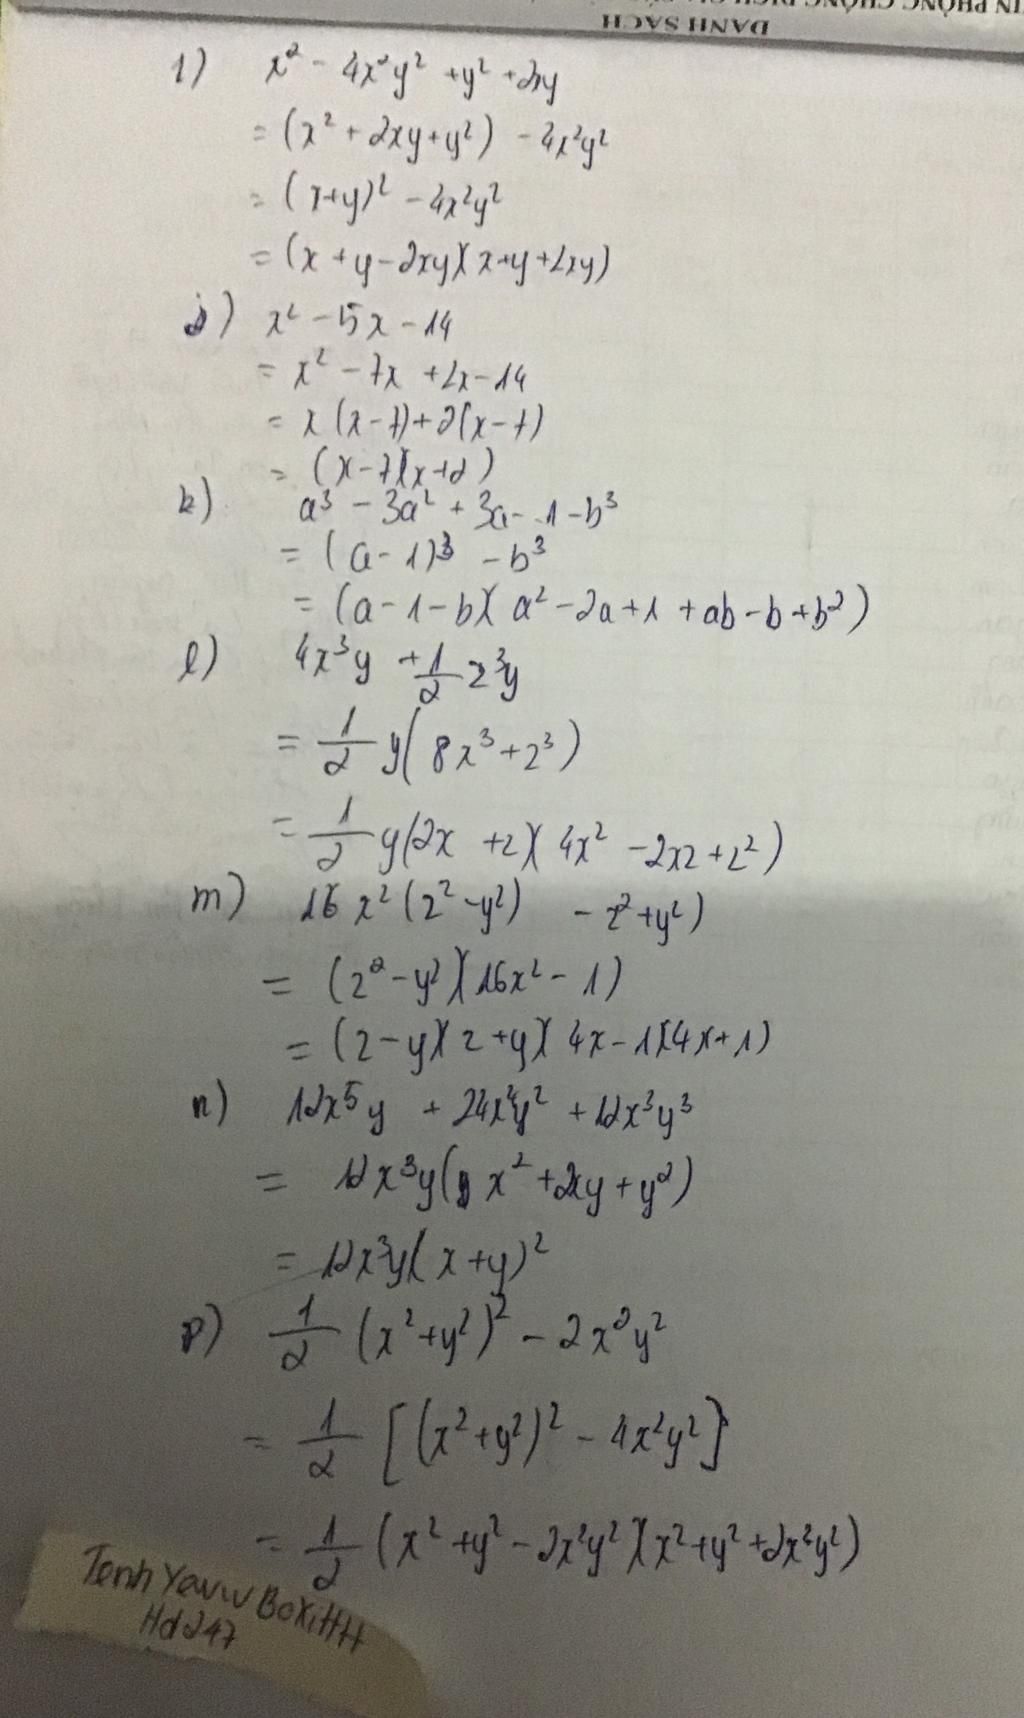 DANH SÁCH
1) x² - 4x²y² + y² + 2xy
= (x² + 2xy + y²) - 4x²y²
= (x+y)² - 4x²y²
= (x + y - 2xy)(x + y + 2xy)
j) x² - 5x - 14
= x² - 7x + 2x - 14
= x(x-7) + 2(x-7)
= (x-7)(x+2)
k) a³ - 3a² + 3a - 1 - b³
= (a-1)³ - b³
= (a-1-b)(a² - 2a + 1 + ab - b + b²)
l) 4x³y + 1/2 z³y
= 1/2 y(8x³ + z³)
= 1/2 y(2x + z)(4x² - 2xz + z²)
m) 16x²(z² - y²) - z² + y²)
= (z² - y²)(16x² - 1)
= (z-y)(z+y)(4x-1)(4x+1)
n) 12x⁵y + 24x⁴y² + 12x³y³
= 12x³y(x² + 2xy + y²)
= 12x³y(x+y)²
p) 1/2 (x²+y²)² - 2x²y²
= 1/2 [(x²+y²)² - 4x²y²]
= 1/2 (x² + y² - 2x²y²)(x² + y² + 2x²y²)
Hd247